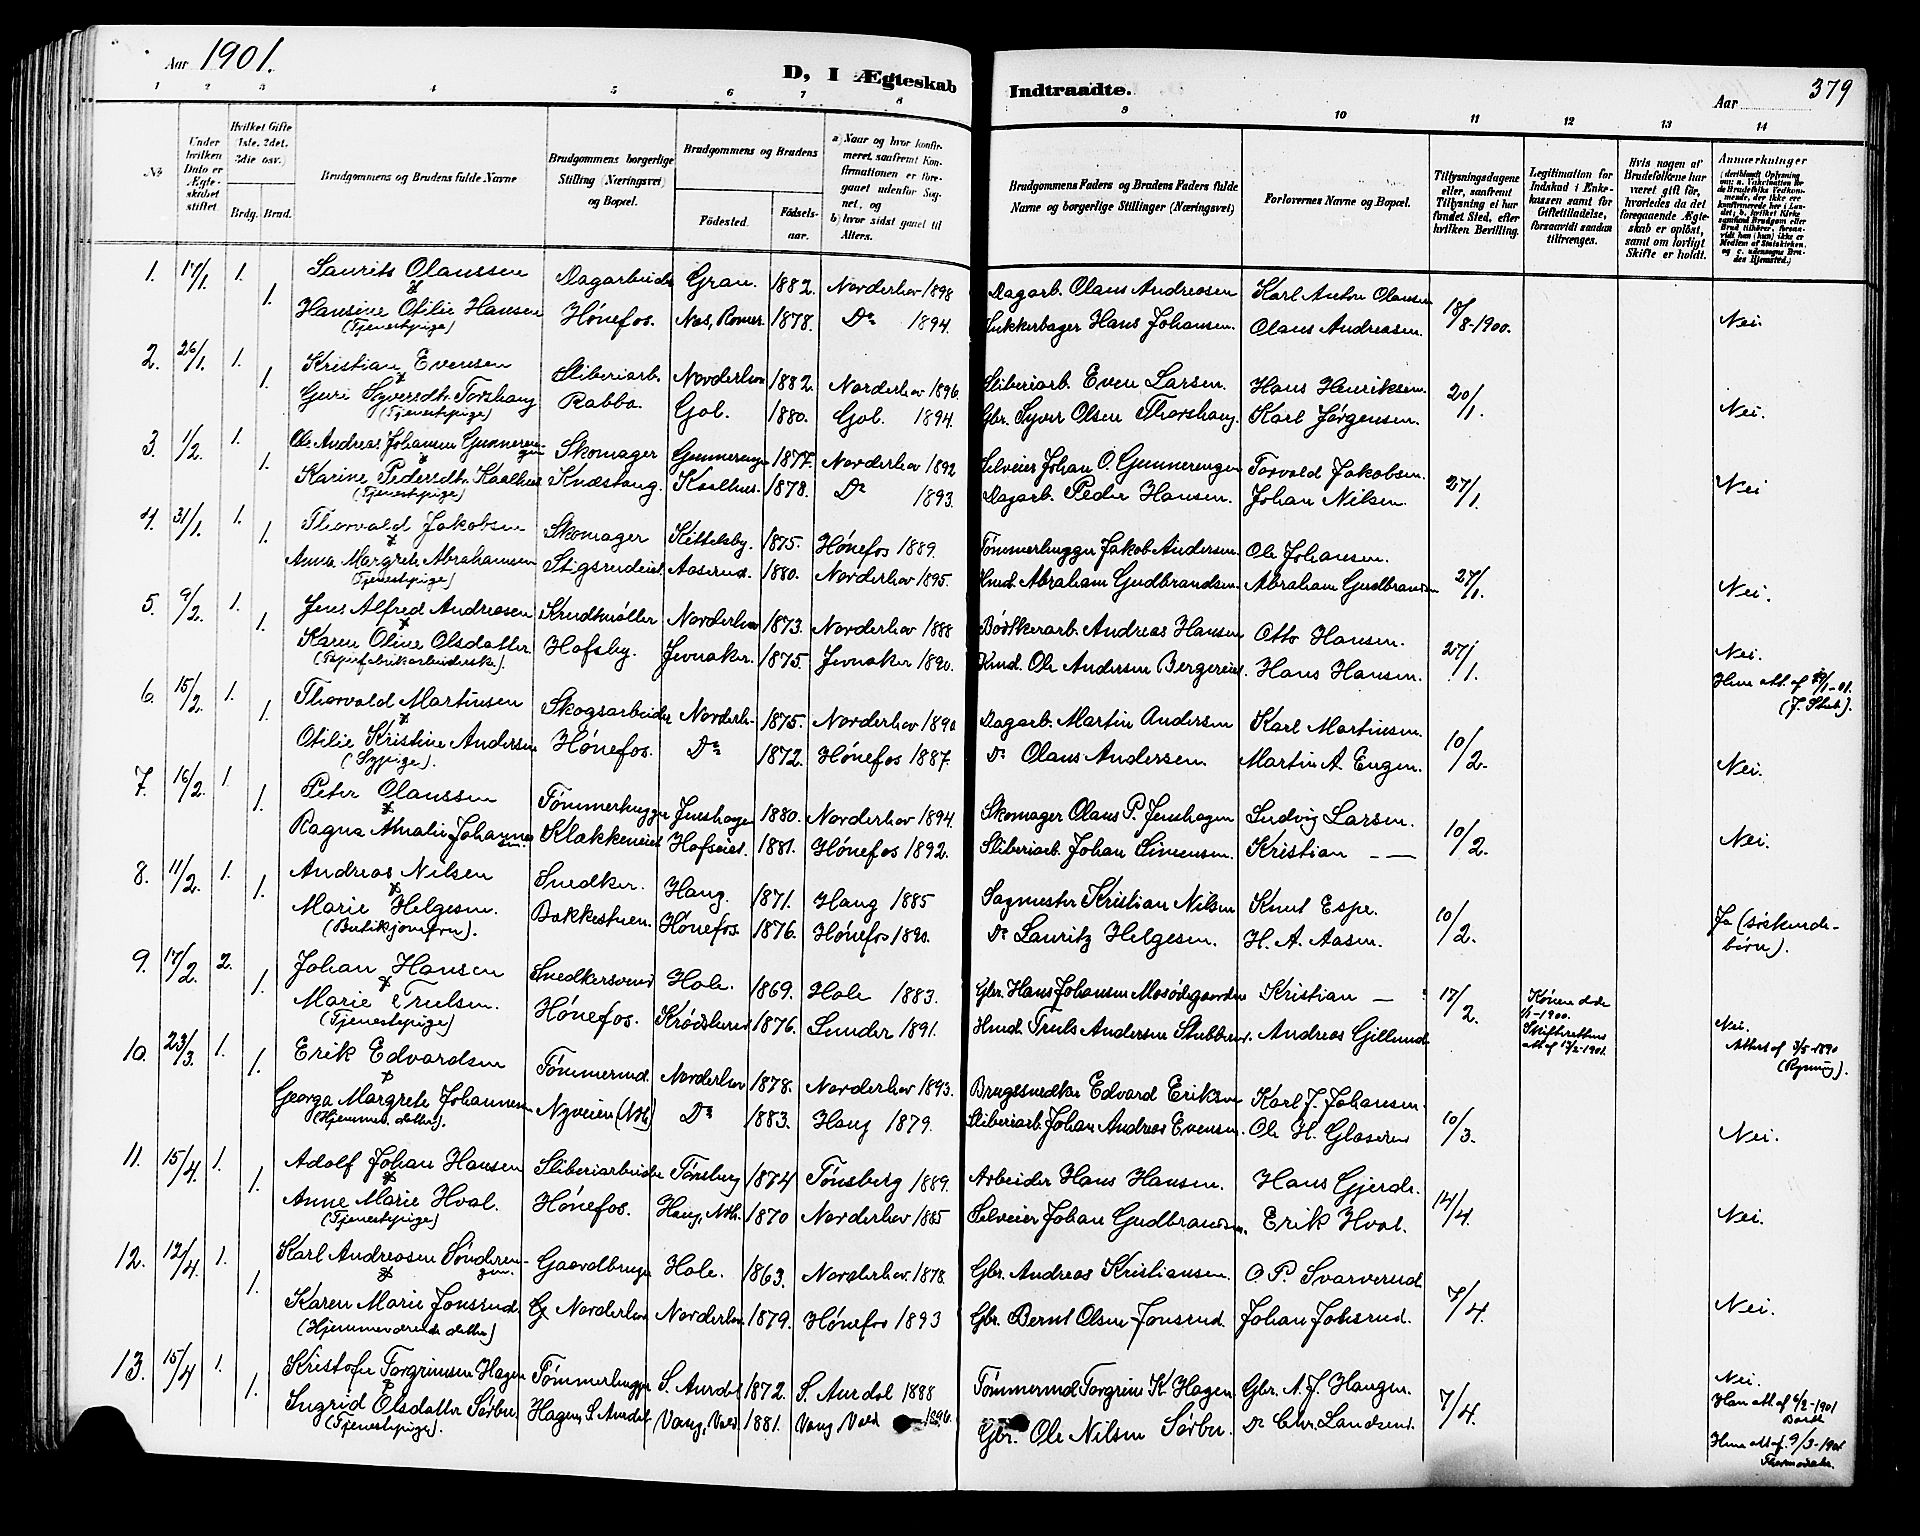 Aar 1901.
D, I Ægteskab Indtraadte.
Aar 379
1 2 3 4 5 6 7 8 9 10 11 12 13 14
No
Under hvilken Dato er Ægteskabet stiftet.
Hvilket Gifte 1ste, 2det, 3die osv.)
Brdg. Brud.
Brudgommens og Brudens fulde Navne
Brudgommens borgerlige Stilling (Næringsvei) og Bopæl.
Brudgommens og Brudens
Födested. Födselsaar.
a) Naar og hvor konfirmeret, saafremt Konfirmationen er foregaaet udenfor Sognet, og
b) hvor sidst gaaet til Alters.
Brudgommens Faders og Brudens Faders fulde Navne og borgerlige Stillinger (Næringsvei)
Forlovernes Navne og Bopæl.
Tillysningsdagene eller, saafremt Tillysning ei har fundet Sted, efter hvilken Bevilling.
Legitimation for Indskud i Enkekassen samt for Giftetilladelse, forsaavidt saadan tiltrænges.
Hvis nogen af Brudefolkene har været gift før, hvorledes da det foregaaende Ægteskab er opløst, samt om lovligt Skifte er holdt.
Anmærkninger
1. 17/1 1. Laurits Olaussen Dagarbeider Gran. 1882. Norderhov 1898 Dagarb. Olaus Andreasen Karl Anton Olausen 18/8-1900. Nei.
1. Hansine Otilie Hansen Hønefos. Nes, Romer. 1878. Do 1894. Sukkerbager Hans Johansen. Olaus Andreasen.
(Tjenestepige)
2. 26/1. 1. Kristian Evensen Sliberiarb. Norderhov 1882. Norderhov 1896. Sliberiarb. Even Larsen. Hans Henriksen. 20/1. Nei.
1. Guri Syversdtr. Torshaug Rabba. Gol. 1880. Gol. 1894. Gbr. Syver Olsen Thorshaug. Karl Jørgensen.
(Tjenestepige)
3. 1/2. 1. Ole Andreas Johansen Gunnerengen Skomager Gunnerengen 1877. Norderhov 1892 Selveier Johan O. Gunnerengen Torvald Jakobsen. 27/1. Nei
1. Karine Pedersdtr. Kaalhus Knestang. Kaalhus. 1878. Do 1893. Dagarb. Peder Hansen. Johan Nilsen.
(Tjenestepige)
4. 31/1. 1. Thorvald Jakobsen Skomager Kittelsby. 1875. Hønefos 1889. Tømmerhugger Jakob Andersen. Ole Johansen. 27/1. Nei.
1. Anna Margrete Abrahamsen Stigsrudeiet Aaserud. 1880. Norderhov 1895. Hmd. Abraham Gudbrandsen. Abraham Gudbrandsen
(Tjenestepige)
5. 9/2. 1. Jens Alfred Andreasen Krudtmøller Norderhov 1873. Norderhov 1888 Bødkerarb. Andreas Hansen Otto Hansen. 27/1. Nei.
1. Karen Oline Olsdatter Hofsby. Jevnaker. 1875. Jevnaker 1890. Hmd. Ole Andersen Bergereiet. Hans Hansen. Hun att. af /1-01.
6. 15/2. 1. Thorvald Martinsen Skogsarbeider Norderh. 1875. Norderhov 1890 Dagarb. Martin Andersen Karl Martinsen. 10/2. Nei.
1. Otilie Kristine Andersen Hønefos. Do 1872. Hønefos 1887. Do Olaus Andersen Martin A. Engen.
(Sypige).
7. 16/2. 1. Peter Olaussen Tømmerhugger Jenshagen 1880. Norderhov 1894. Skomager Olaus P. Jenshagen Ludvig Larsen. 10/2. Nei.
1. Ragna Amalie Johannessen Klækkeneiet Hofseiet. 1881. Hønefos 1892. Sliberiarb. Johan Simensen. Kristian —
8. 11/2. 1. Andreas Nilsen Snedker. Haug. 1871. Haug 1885 Sagmester Kristian Nilsen Knut Espe. 10/2. Ja (søskendebørn).
1. Marie Helgesen. Bakkestuen. Hønefos. 1876. Hønefos 1890. Do Lauritz Helgesen. H. A. Aasen.
(Butikjomfru).
9. 17/2. 2. Johan Hansen Snedkersvend Hole. 1869. Hole 1883. Gbr. Hans Johansen Mosødegaarden Kristian — 17/2. Nei.
1. Marie Trulsen. Hønefos. Krødsherred 1876. Lunder 1891. Hmd. Truls Andersen Stubberud. Andreas Gillund
(Tjenestepige)
10. 23/3. 1. Erik Edvardsen Tømmermd. Norderhov 1878. Norderhov 1893. Brugssnedker Edvard Eriksen Karl J. Johansen. 10/3. Nei.
1. Georga Margrete Johannessen Nyveien (Nh) Do 1883. Haug 1879. Sliberiarb. Johan Andreas Evensen. Ole H. Glaserud
(Hjemmev. datter).
11. 15/4. 1. Adolf Johan Hansen Sliberiarbeider Tønsberg 1874 Tønsberg 1889. Arbeider Hans Hansen. Hans Gjerde. 14/4. Nei.
1. Anne Marie Hval. Hønefos. Haug, Ndh. 1870 Norderhov 1885 Selveier Johan Gudbrandsen. Erik Hval.
(Tjenestepige)
12. 12/4. 1. Karl Andreasen Sønderengen. Gaardbruger Hole. 1863. Norderhov. 1878. Gbr. Andreas Kristiansen. O. P. Svarverud. 7/4. Nei.
1. Karen Marie Jonsrud. Gj. Norderhov Norderhov. 1879. Hønefos 1893 Gbr. Bernt Olsen Jonsrud. Johan Jonsrud.
(Hjemmeværende datter)
13. 15/4 1. Kristofer Torgrimsen Hagen Tømmerhugger S. Aurdal 1872. S. Aurdal 1888 Tømmermd Torgrim K. Hagen Gbr. A. J. Haugen. 7/4. Nei.
1. Ingrid Olsdatter Sørbu. Hagen, S. Aurdal Vang, Vald. 1881. Vang Vald 1896. Gbr. Ole Nilsen Sørbu. Do Chr. Landsend.
(Tjenestepige).
Han att. af 6/2-1901
Hun att. af. 9/3-1901